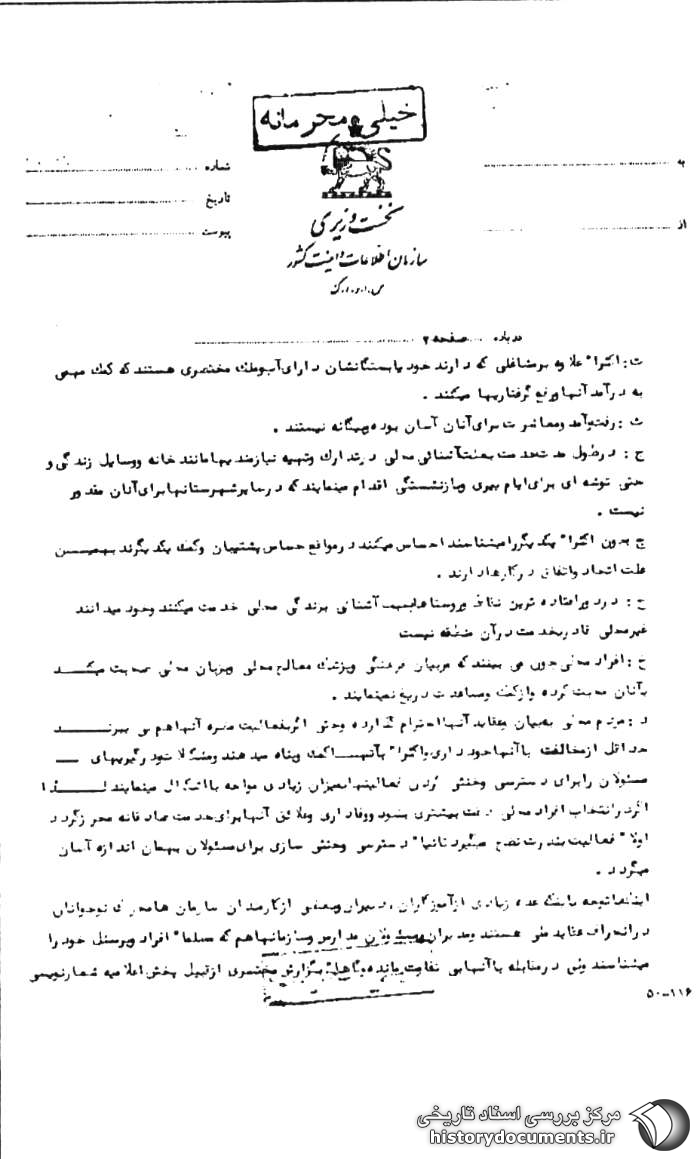 خیلی محرمانه
به
شماره
از
تاریخ
پیوست
نخست وزیری
سازمان اطلاعات و امنیت کشور
س.ا.و.ا.ک
درباره صفحه ۲
ت: اکثراً علاوه بر مشاغلی که دارند خود یا بستگانشان دارای آب و ملک مختصری هستند که کمک مهمی
به درآمد آنها و رفع گرفتاریها میکند .
ث : رفت و آمد و معاشرت برای آنان آسان بوده و بیگانه نیستند .
ج : در طول مدت خدمت بعلت آشنائی محلی در تدارک و تهیه نیازمندیها مانند خانه و وسایل زندگی و
حتی توشه ای برای ایام پیری و بازنشستگی اقدام مینمایند که در سایر شهرستانها برای آنان مقدور
نیست .
چ بدون اکثراً یکدیگر را میشناسند احساس میکنند در مواقع حساس پشتیبان و کمک یکدیگرند بهمین
علت اتحاد و اتفاق در کارها دارند .
ح : در دور افتاده ترین نقاط و روستاها بسبب آشنائی بزندگی محلی خدمت میکنند و خود میدانند
غیر محلی قادر بخدمت در آن منطقه نیست
خ : افراد محلی چون می بینند که مربیان فرهنگی و پزشک معالج محلی و بزبان محلی صحبت میکند
بآنان محبت کرده و از کمک و مساعدت دریغ نمینمایند .
د : مردم محلی بمربیان و عقاید آنها احترام گذارده و حتی اگر بفعالیت مضره آنها هم پی ببرند
حداقل از مخالفت با آنها خودداری و اکثراً بآنها کمک و پناه میدهند و مشکلات و درگیریهای
مسئولان را برای دسترسی و خنثی کردن فعالیتها بمیزان زیادی مواجه با اشکال مینمایند لذا
اگر در انتخاب افراد محلی دقت بیشتری بشود و وفاداری و علائق آنها برای خدمت صادقانه محرز گردد
اولاً فعالیت بندرت نضج میگیرد ثانیاً دسترسی و خنثی سازی برای مسئولان بهمان اندازه آسان
میگردد .
ایضاً توجه باینکه عده زیادی از آموزگاران ، دبیران و بعضی از کارمندان سازمان ها محرک نوجوانان
در انحراف عقاید ملی هستند و مدیران و مسئولان مدارس و سازمانها هم که مسلماً افراد و پرسنل خود را
میشناسند ولی در مقابله با آنها بی تفاوت بوده و گاهی بگزارش مختصری از قبیل پخش اعلامیه شعارنویسی
۵۰-۱۱۶
مرکز بررسی اسناد تاریخی
historydocuments.ir